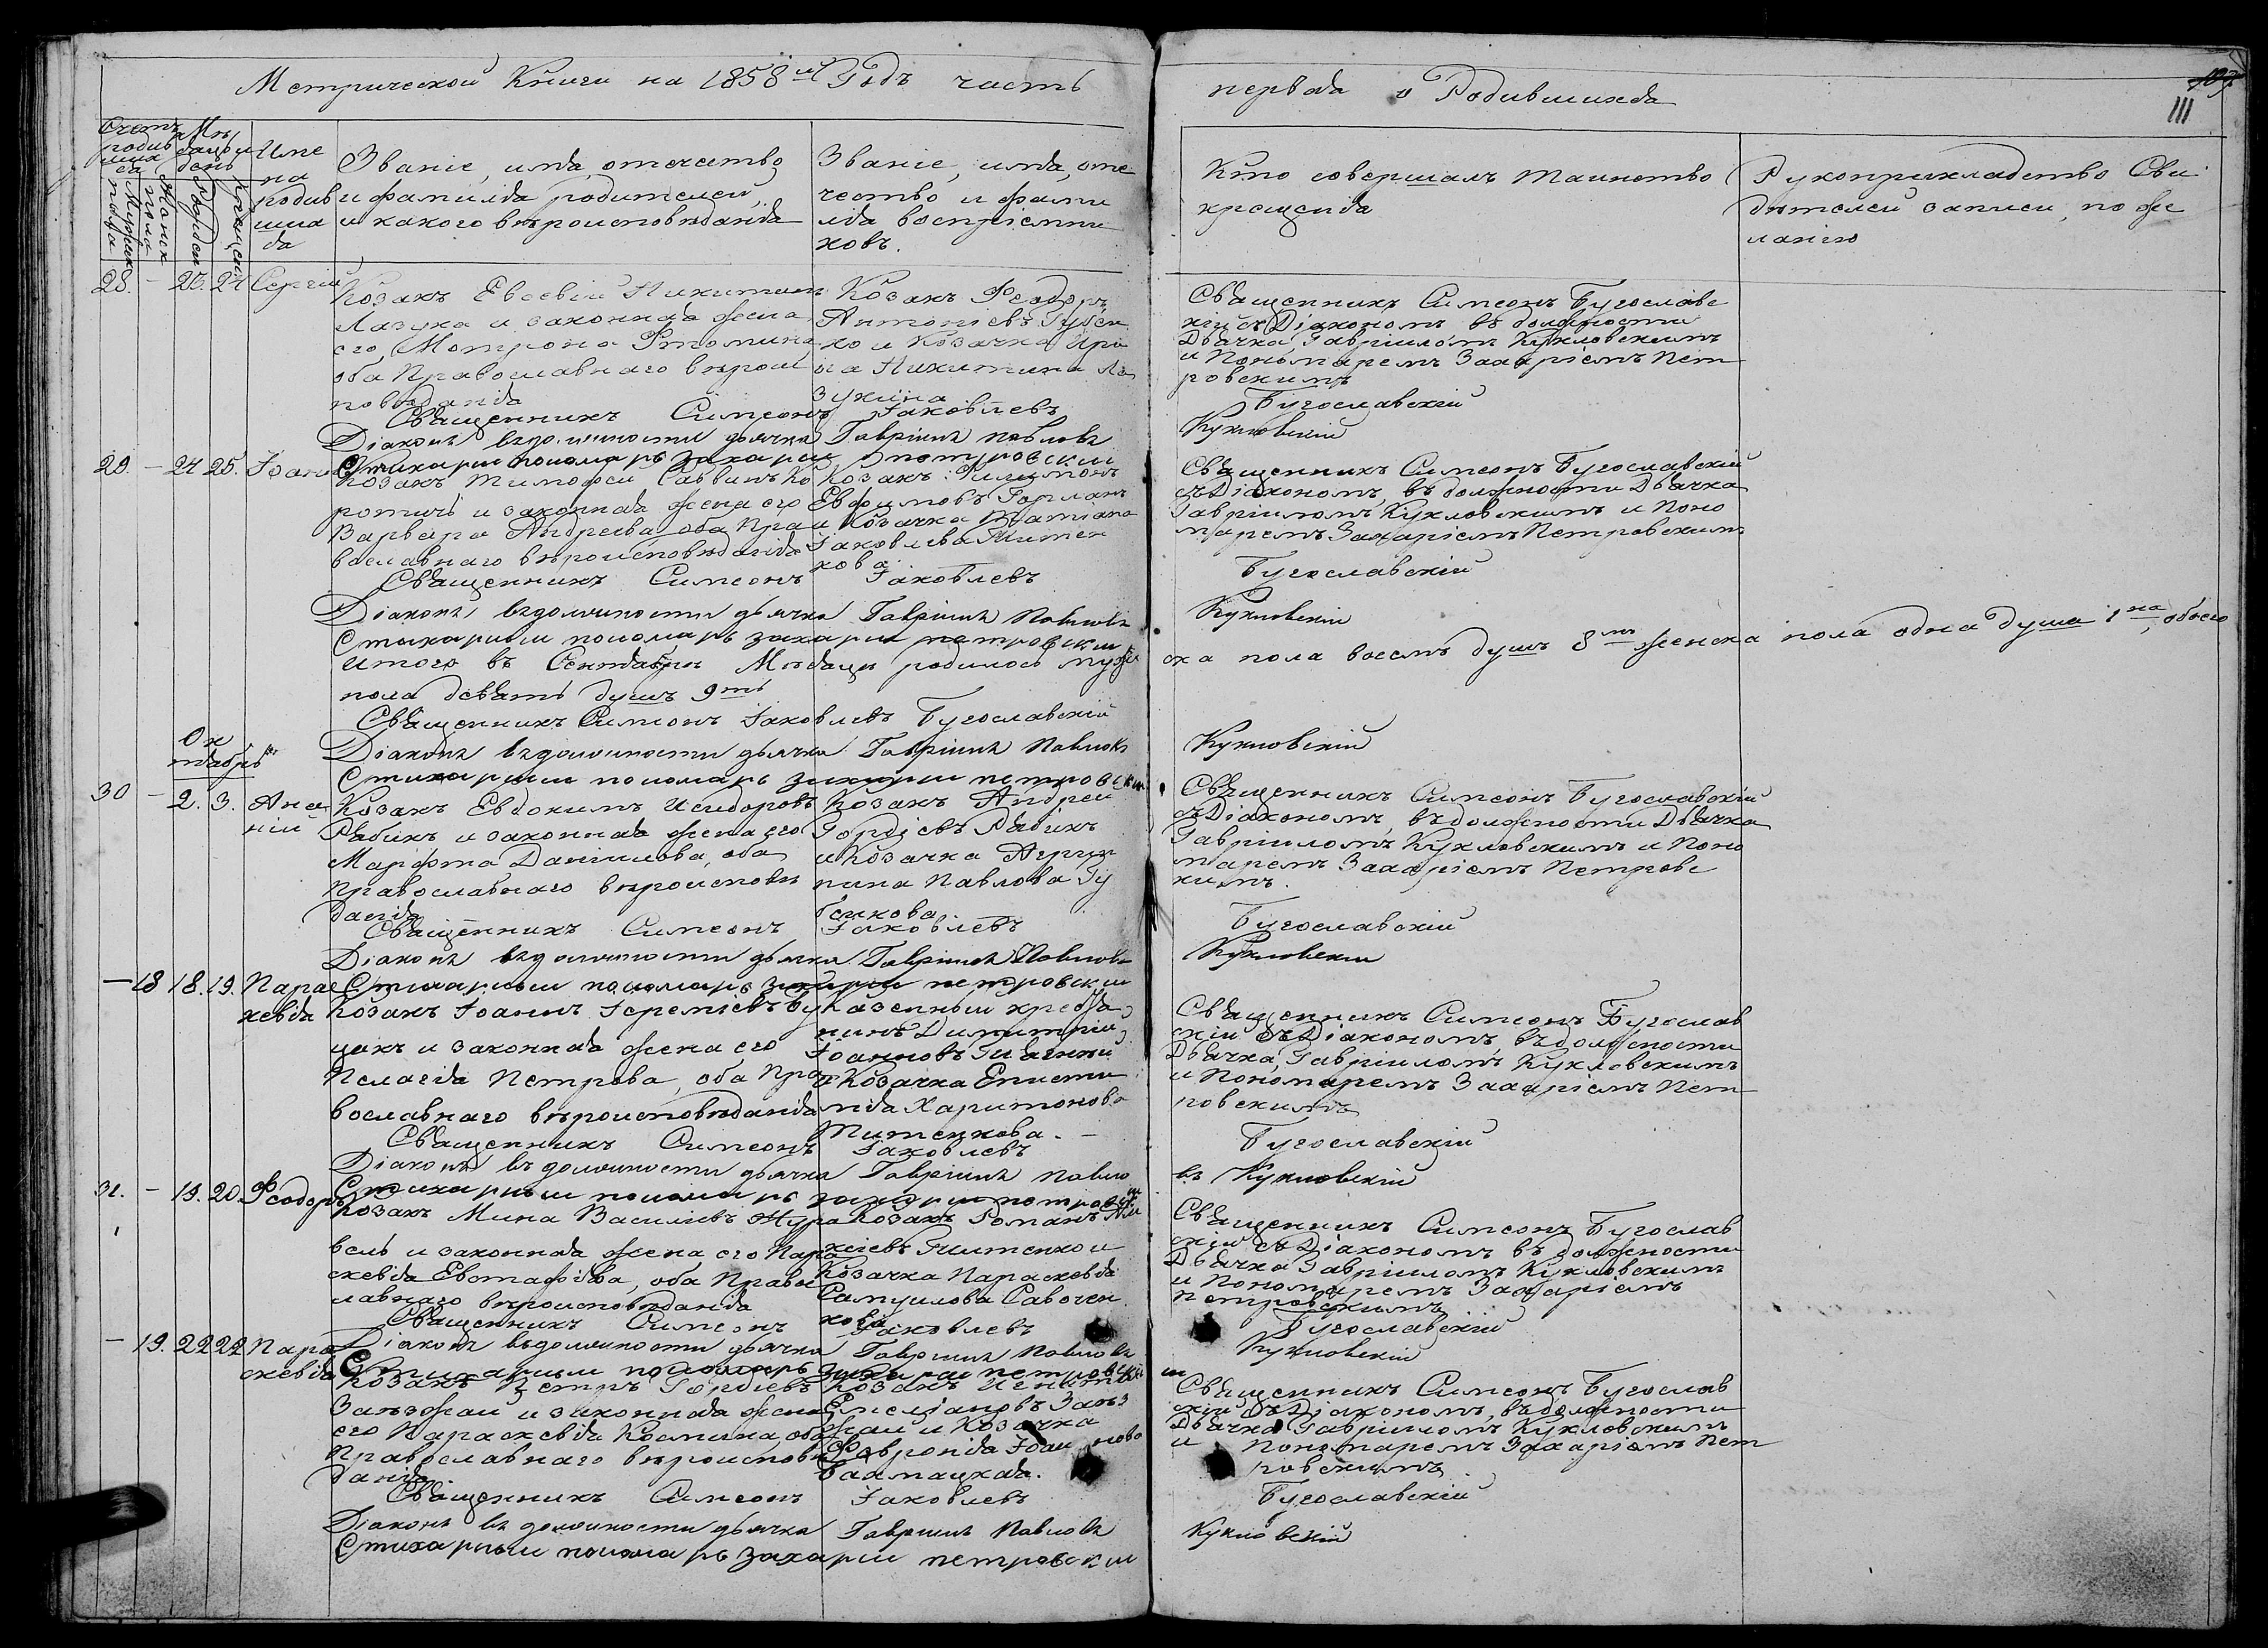 Метрической Книги на 1858й Годъ часть
первая о Родившихся
111
Счетъ родившихся
Мужеска пола
Женска пола
Мѣсяцъ и день
Рожденія
Крещенія
Имена родившихся
Званіе, имя, отечество
и фамилія родителей,
и какого вѣроисповѣданія
Званіе, имя, оте
чество и фами
лія воспріемни
ковъ.
Кто совершалъ таинство
крещенія
Рукоприкладство Сви
дѣтелей записи, по же
ланію
28. - 23. 24 Сергій
Козакъ Евсевій Никитинъ
Лазука и законная жена
его Матрона Фтомина
оба Православнаго вѣроис
повѣданія
Козакъ Феодоръ
Антоніевъ Губен
ко и Козачка Ири
на Никитина Ла
зукина
Священникъ Симеонъ Бугославс
кій съ Діакономъ въ должности
Дьячка, Гавріиломъ Кукловскимъ
и Пономаремъ Захаріемъ Пет
ровскимъ
Священникъ Симеонъ Іаковлевъ Бугославскій
Діаконъ въ должности дьячка Гавріилъ Павловъ Кукловскій
Стихарный пономарь Захарій Петровскій
29. - 24 25. Іоаннъ
Козакъ Тимофей Саввинъ Ко
ротичъ и законная жена его
Варвара Андреева оба Пра
вославнаго вѣроисповѣданія
Козакъ Филимонъ
Евфимовъ Горлачъ
и Козачка Татіана
Іаковлева Титен
кова
Священникъ Симеонъ Бугославскій
съ Діакономъ, въ должности Дьячка
Гавріиломъ Кукловскимъ и Поно
маремъ Захаріемъ Петровскимъ
Священникъ Симеонъ Іаковлевъ Бугославскій
Діаконъ въ должности дьячка Гавріилъ Павловъ Кукловскій
Стихарный пономарь Захарій Петровскій
Итого въ Сентябрѣ Мѣсяцѣ родилось муже
ска пола восемь душъ 8мъ женска пола одна душа 1на, обоего
пола девять душъ 9ть
Священникъ Симеонъ Іаковлевъ Бугославскій
Діаконъ въ должности дьячка Гавріилъ Павловъ Кукловскій
Стихарный пономарь Захарій Петровскій
Ок
тябрь
30 - 2. 3. Ана
ній
Козакъ Евдокимъ Исидоровъ
Рябикъ и законная жена его
Марфта Даніилова, оба
Православнаго вѣроисповѣ
данія
Козакъ Андрей
Гордіевъ Рябикъ
и Козачка Агрип
пина Павлова Гу
бенкова.
Священникъ Симеонъ Бугославскій
съ Діакономъ, въ должности Дьячка
Гавріиломъ Кукловскимъ и Поно
маремъ Захаріемъ Петровс
кимъ.
Священникъ Симеонъ Іаковлевъ Бугославскій
Діаконъ въ должности дьячка Гавріилъ Павловъ Кукловскій
Стихарный пономарь Захарій Петровскій
- 18 18. 19. Парас
кевія
Козакъ Іоаннъ Іереміевъ Бу
цикъ и законная жена его
Пелагія Петрова, оба Пра
вославнаго вѣроисповѣданія
Казенный крестья
нинъ Димитрій
Іоанновъ
и Козачка Еписти
мія Харитонова
Титенкова. -
Священникъ Симеонъ Бугослав
скій съ Діакономъ, въ должности
Дьячка, Гавріиломъ Кукловскимъ
и Пономаремъ Захаріемъ Пет
ровскимъ
Священникъ Симеонъ Іаковлевъ Бугославскій
Діаконъ въ должности дьячка Гавріилъ Павло
въ Кукловскій
Стихарный пономарь Захарій Петровскій
31. - 19. 20. Феодоръ
Козакъ Мина Василіевъ Жура
вель и законная жена его Пара
скевія Евстафіева, оба Правос
лавнаго вѣроисповѣданія
Козакъ Романъ
Титенко и
Козачка Параскевія
Самуилова Савочен
кова
Священникъ Симеонъ Бугослав
скій съ Діакономъ въ должности
Дьячка Гавріиломъ Кукловскимъ
и Пономаремъ Захаріемъ
Петровскимъ
Священникъ Симеонъ Іаковлевъ Бугославскій
Діаконъ въ должности дьячка Гавріилъ Павловъ Кукловскій
Стихарный пономарь Захарій Петровскій
- 19. 22 22 Пара
скевія
Козакъ Петръ Гордіевъ
Заѣзжай и законная жена
его Параскевія Космина, оба
Православнаго вѣроисповѣ
данія.
Козакъ
Емеліановъ Заѣз
жай и Козачка
Февронія Іоаннова
Балмацкая.
Священникъ Симеонъ Бугослав
скій съ Діакономъ, въ должности
Дьячка Гавріиломъ Кукловскимъ
и Пономаремъ Захаріемъ Пет
ровскимъ
Священникъ Симеонъ Іаковлевъ Бугославскій
Діаконъ въ должности дьячка Гавріилъ Павловъ Кукловскій
Стихарный пономарь Захарій Петровскій